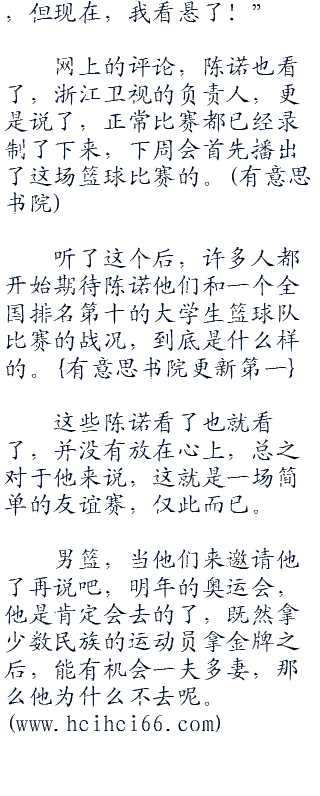 ，但现在，我看悬了！”
网上的评论，陈诺也看
了，浙江卫视的负责人，更
是说了，正常比赛都已经录
制了下来，下周会首先播出
了这场篮球比赛的。(有意思
书院)
听了这个后，许多人都
开始期待陈诺他们和一个全
国排名第十的大学生篮球队
比赛的战况，到底是什么样
的。{有意思书院更新第一}
这些陈诺看了也就看
了，并没有放在心上，总之
对于他来说，这就是一场简
单的友谊赛，仅此而已。
男篮，当他们来邀请他
了再说吧，明年的奥运会，
他是肯定会去的了，既然拿
少数民族的运动员拿金牌之
后，能有机会一夫多妻，那
么他为什么不去呢。
(www.hcihci66.com)